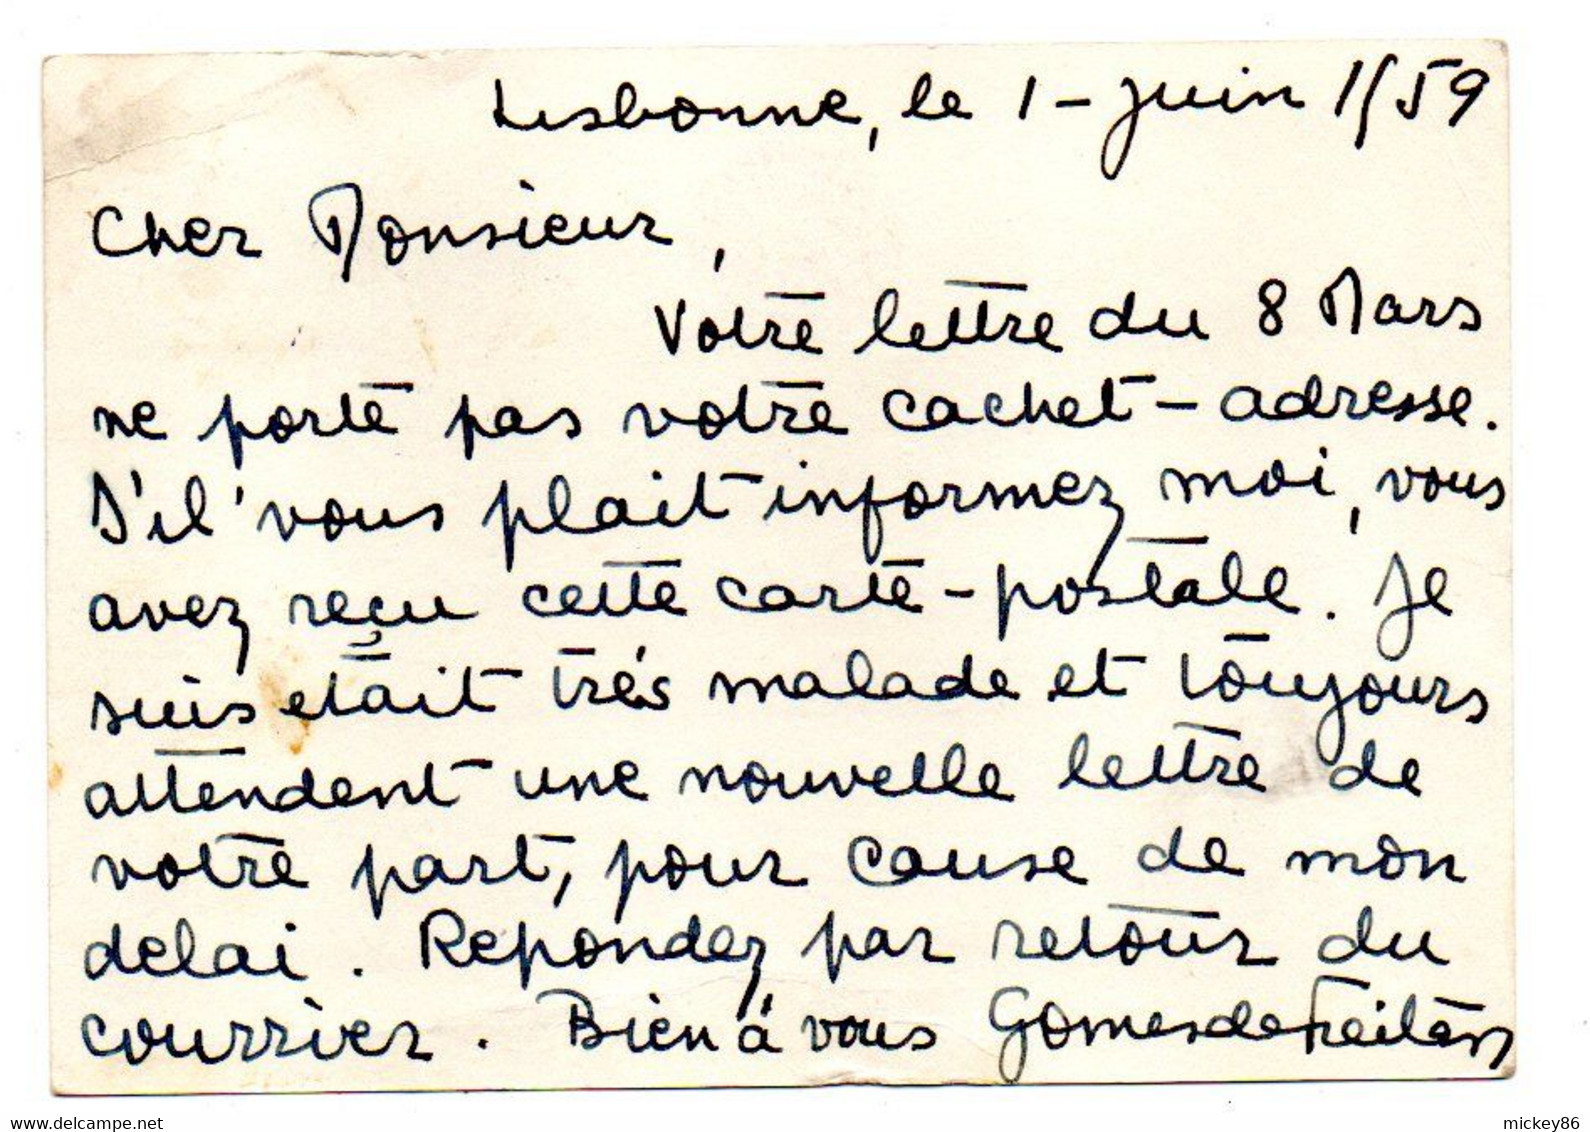 Lisbonne, le 1 - Juin 1/59
Cher Monsieur,
Votre lettre du 8 Mars
ne porte pas votre cachet - adresse.
S'il vous plait informez moi, vous
avez reçu cette carte - postale. Je
suis etait trés malade et toujours
attendent une nouvelle lettre de
votre part, pour cause de mon
delai. Repondez par retour du
courrier. Bien á vous Gomes de Freitas
www.delcampe.net
mickey86